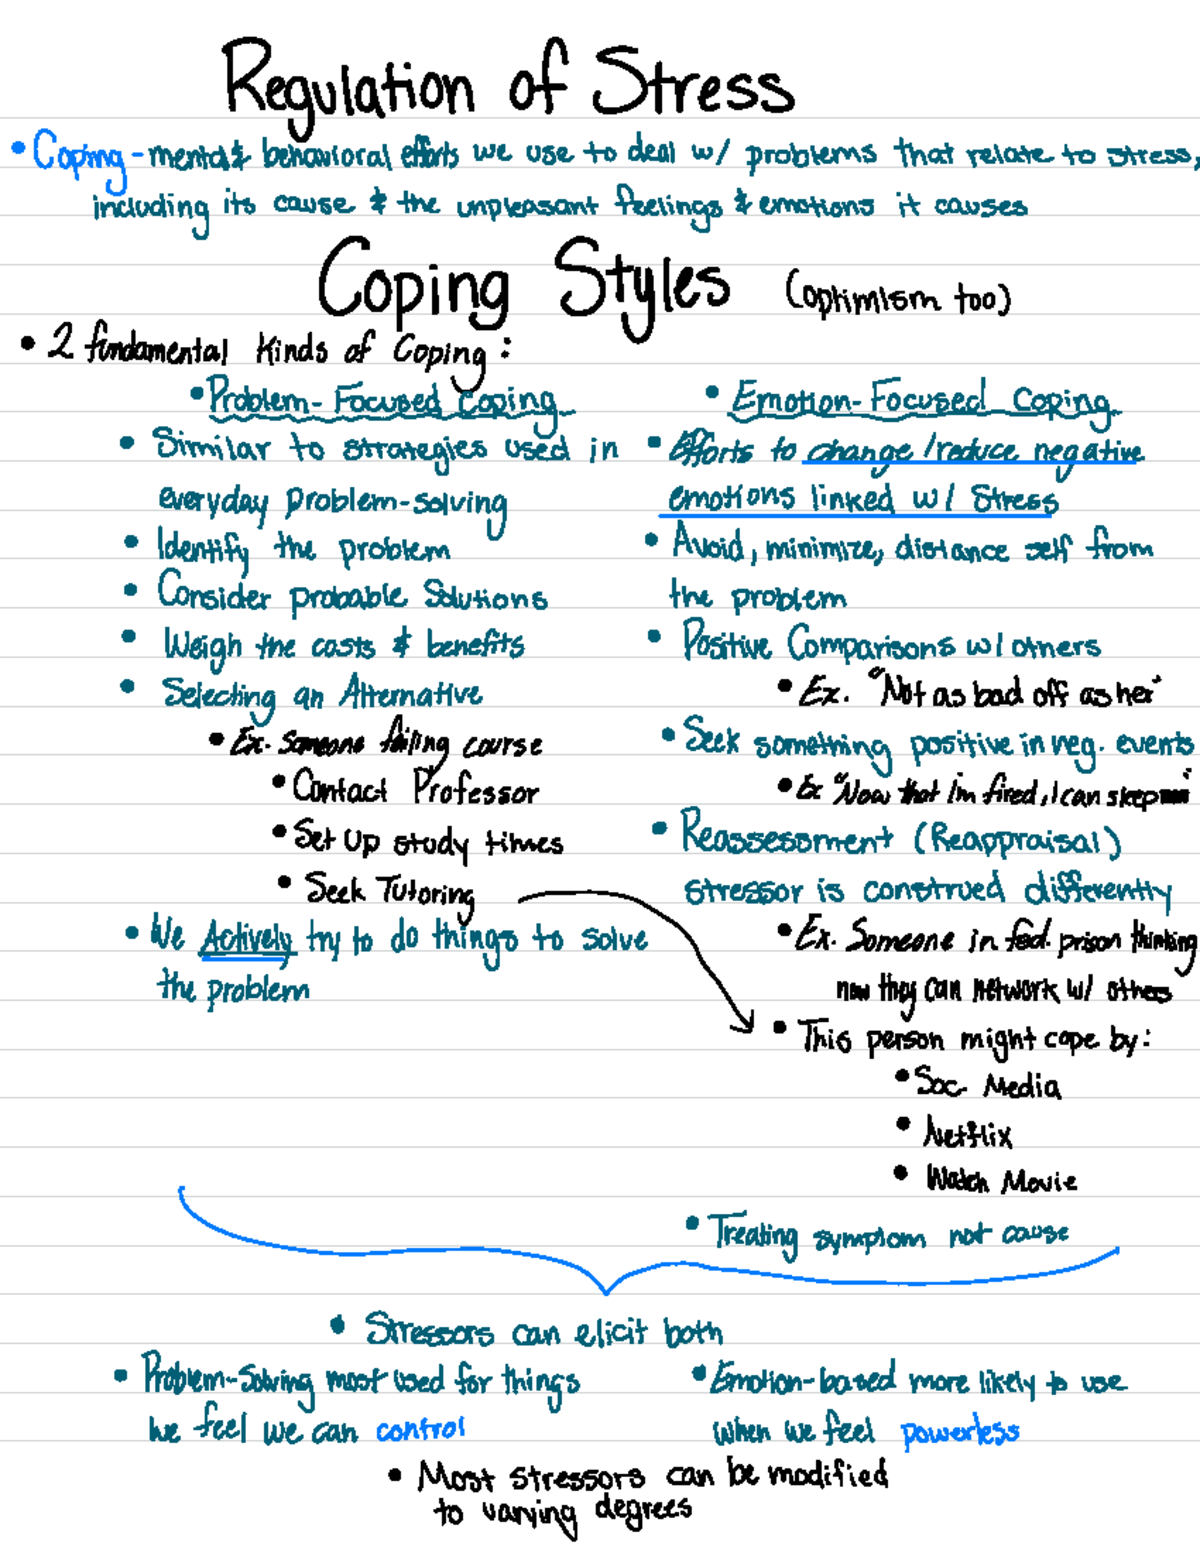 Regulation of Stress
• Coping - mental & behavioral efforts we use to deal w/ problems that relate to stress,
including its cause & the unpleasant feelings & emotions it causes
Coping Styles (optimism too)
• 2 fundamental kinds of Coping:
• Problem-Focused Coping
• Similar to strategies used in
everyday problem-solving
• Identify the problem
• Consider probable Solutions
• Weigh the costs & benefits
• Selecting an Alternative
• Ex. Someone failing course
• Contact Professor
• Set Up study times
• Seek Tutoring
• We Actively try to do things to solve
the problem
• Emotion-Focused Coping
• Efforts to change/reduce negative
emotions linked w/ Stress
• Avoid, minimize, distance self from
the problem
• Positive Comparisons w/ others
• Ex. "Not as bad off as her"
• Seek something positive in neg. events
• Ex "Now that I'm fired, I can sleep"
• Reassessment (Reappraisal)
stressor is construed differently
• Ex. Someone in fed. prison thinking
now they can network w/ others
• This person might cope by:
• Soc. Media
• Netflix
• Watch Movie
• Treating symptom not cause
• Stressors can elicit both
• Problem-Solving most used for things
we feel we can control
• Emotion-based more likely to use
when we feel powerless
• Most stressors can be modified
to varying degrees